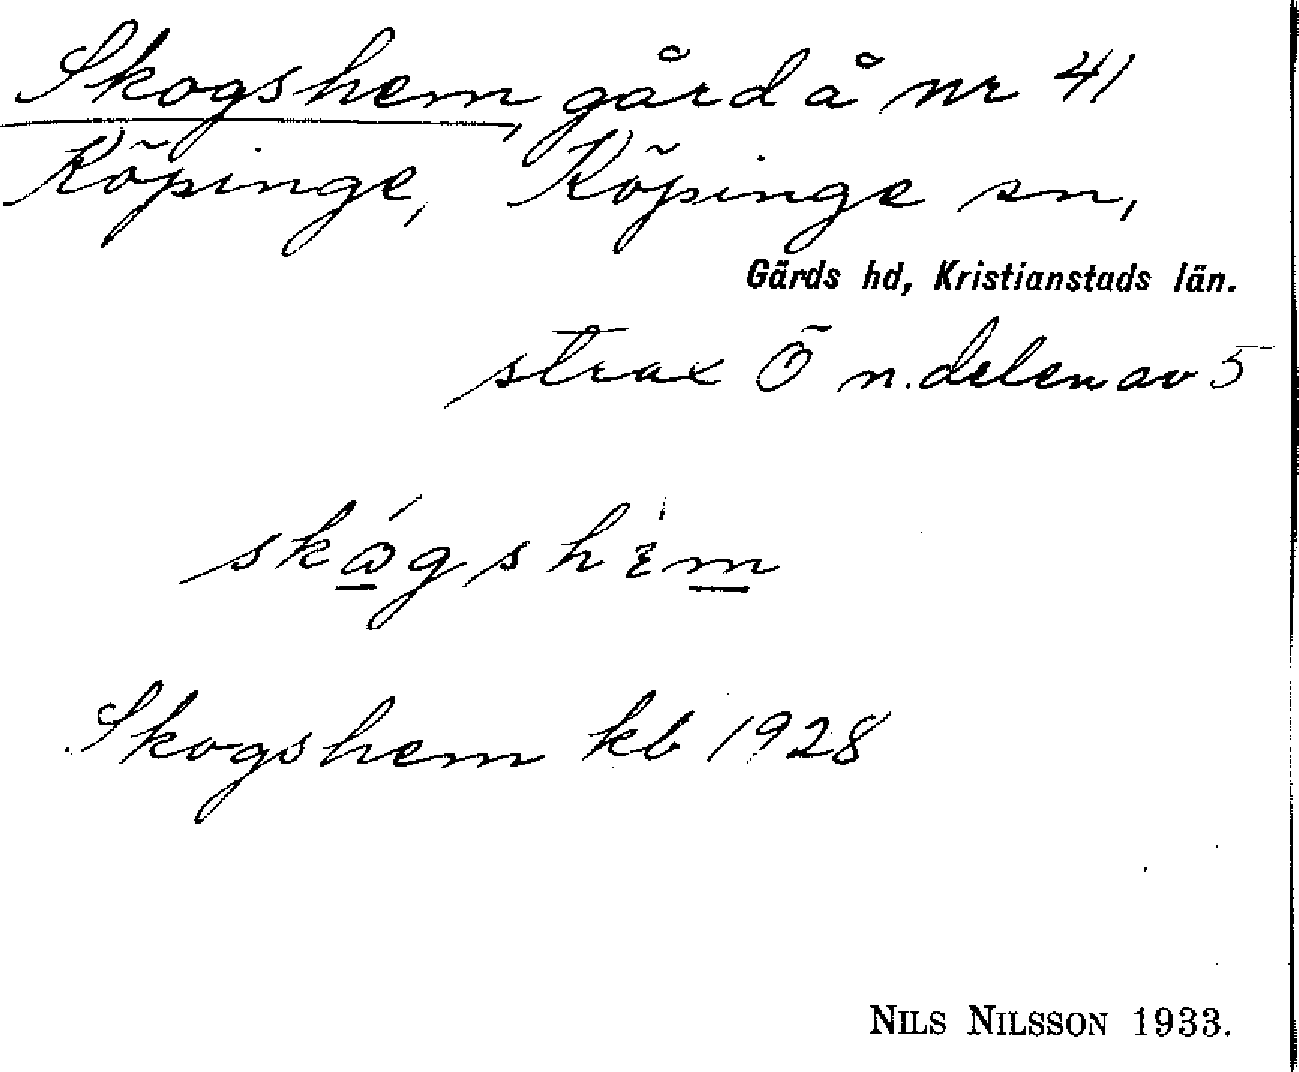 Skogshem, gård å nr 41
Köpinge, Köpinge sn,
Gärds hd, Kristianstads län.
strax Ö n. delen av 5
skógshɛ̀m
Skogshem kb 1928
NILS NILSSON 1933.